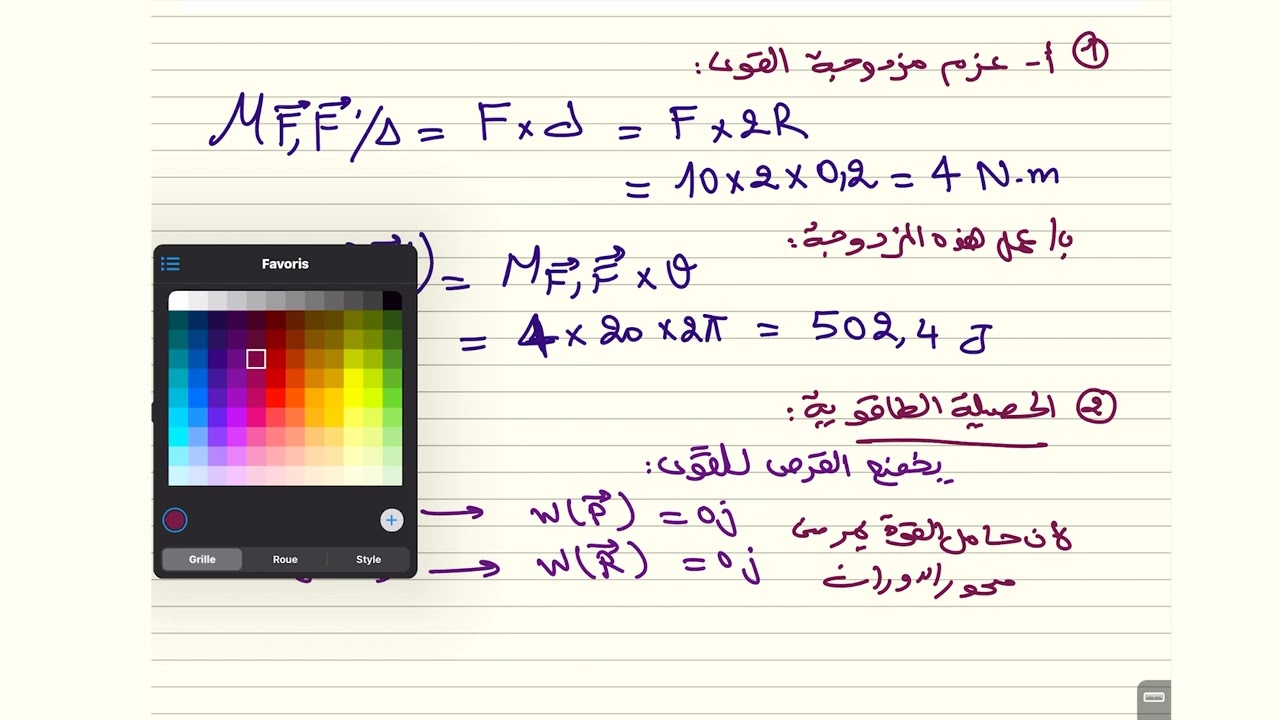 ① أ- عزم مزدوجة القوى:
M F⃗,F⃗'/Δ = F×d = F×2R
= 10×2×0,2 = 4 N.m
ب/ عمل هذه المزدوجة:
) = M F⃗,F⃗ × θ
= 4×20×2π = 502,4 J
② الحصيلة الطاقوية:
يخضع القرص للقوى:
→ W(P⃗) = 0j لأن حامل القوة يمر من
→ W(R⃗) = 0j محور الدوران
Favoris
Grille Roue Style